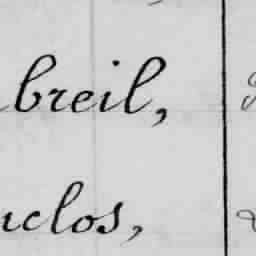 breil,
uclos,